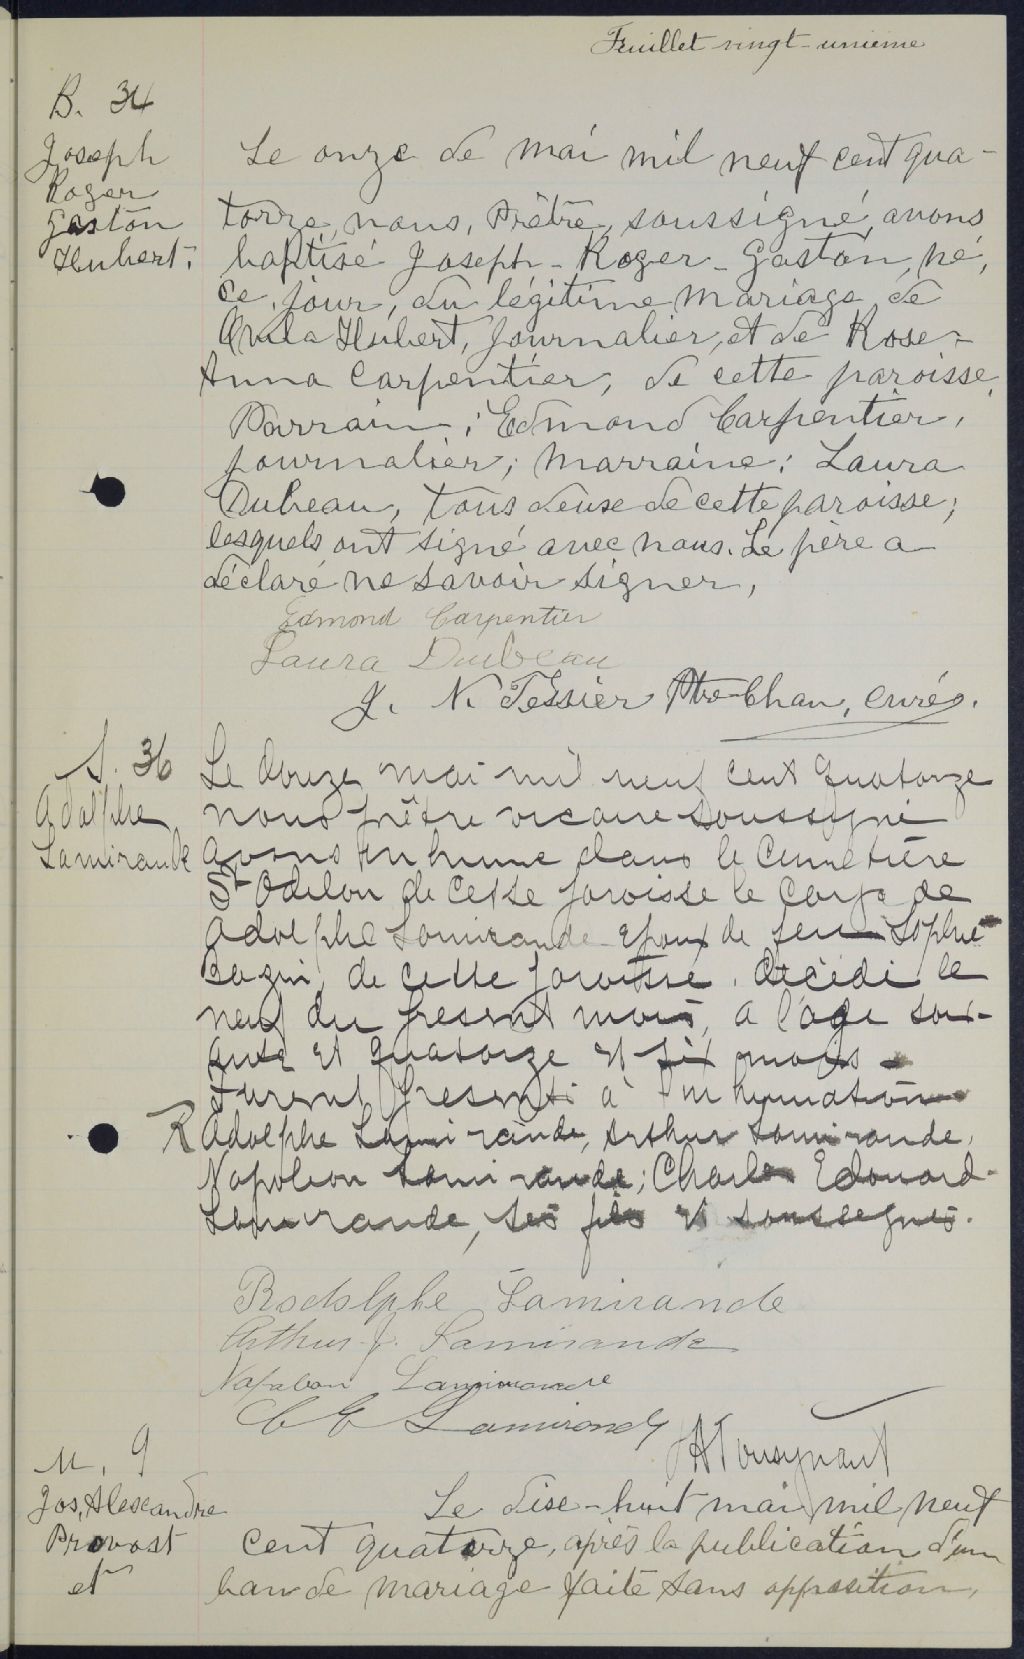 Feuillet vingt-unième
B. 34
Joseph
Roger
Gaston
Hubert.
Le onze de mai mil neuf cent qua-
torze, nous, Prêtre, soussigné, avons
baptisé Joseph-Roger-Gaston, né,
ce jour, du légitime mariage de
Ovila Hubert, journalier, et de Rose-
Anna Carpentier, de cette paroisse.
Parrain: Edmond Carpentier,
journalier; marraine: Laura
Dubeau, tous deux de cette paroisse;
lesquels ont signé avec nous. Le père a
déclaré ne savoir signer,
Edmond Carpentier
Laura Dubeau
J. N. Tessier Ptre-Chan, curé.
S. 36
Adolphe
Lamirande
Le douze mai mil neuf cent quatorze
nous prêtre vicaire soussigné
avons inhumé dans le cimetière
St Odilon de cette paroisse le corps de
Adolphe Lamirande epoux de feu Sophie
de cette paroisse. décédé le
neuf du présent mois, a l'age soix-
ante et quatorze et six mois
Furent présents à l'inhumation
R Adolphe Lamirande, Arthur Lamirande,
Napoléon Lamirande; Charles Edouard
Lamirande, ses fils et soussignés.
Rodolphe Lamirande
Arthur J. Lamirande
Napoleon Lamirande
C E Lamirande
M. 9
Jos, Alexandre
Provost
et
Le dix-huit mai mil neuf
cent quatorze, après la publication d'un
ban de mariage faite sans opposition,